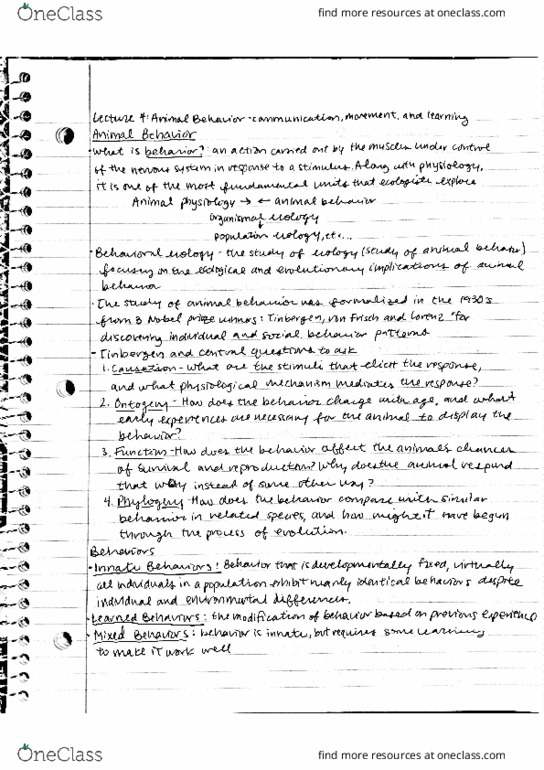 OneClass
find more resources at oneclass.com
Lecture 4: Animal Behavior - communication, movement, and learning
Animal Behavior
• What is behavior?: an action carried out by the muscles under control
of the nervous system in response to a stimulus. Along with physiology,
it is one of the most fundamental units that ecologists explore
Animal physiology → ← animal behavior
organismal ecology
population ecology, etc...
• Behavioral ecology - the study of ecology (study of animal behavior)
focusing on the ecological and evolutionary implications of animal
behavior
• The study of animal behavior was formalized in the 1930's
from 3 Nobel prize winners: Tinbergen, von Frisch and Lorenz "for
discovering individual and social behavior patterns
- Tinbergen and central questions to ask
1. Causation - What are the stimuli that elicit the response,
and what physiological mechanism mediates the response?
2. Ontogeny - How does the behavior change with age, and what
early experiences are necessary for the animal to display the
behavior?
3. Function - How does the behavior affect the animals chances
of survival and reproduction? Why does the animal respond
that way instead of some other way?
4. Phylogeny - How does the behavior compare with similar
behavior in related species, and how might it have begun
through the process of evolution.
Behaviors
• Innate Behaviors: Behavior that is developmentally fixed, virtually
all individuals in a population exhibit nearly identical behaviors despite
individual and environmental differences.
• Learned Behaviors: the modification of behavior based on previous experience
• Mixed Behaviors: behavior is innate, but requires some learning
to make it work well
OneClass
find more resources at oneclass.com